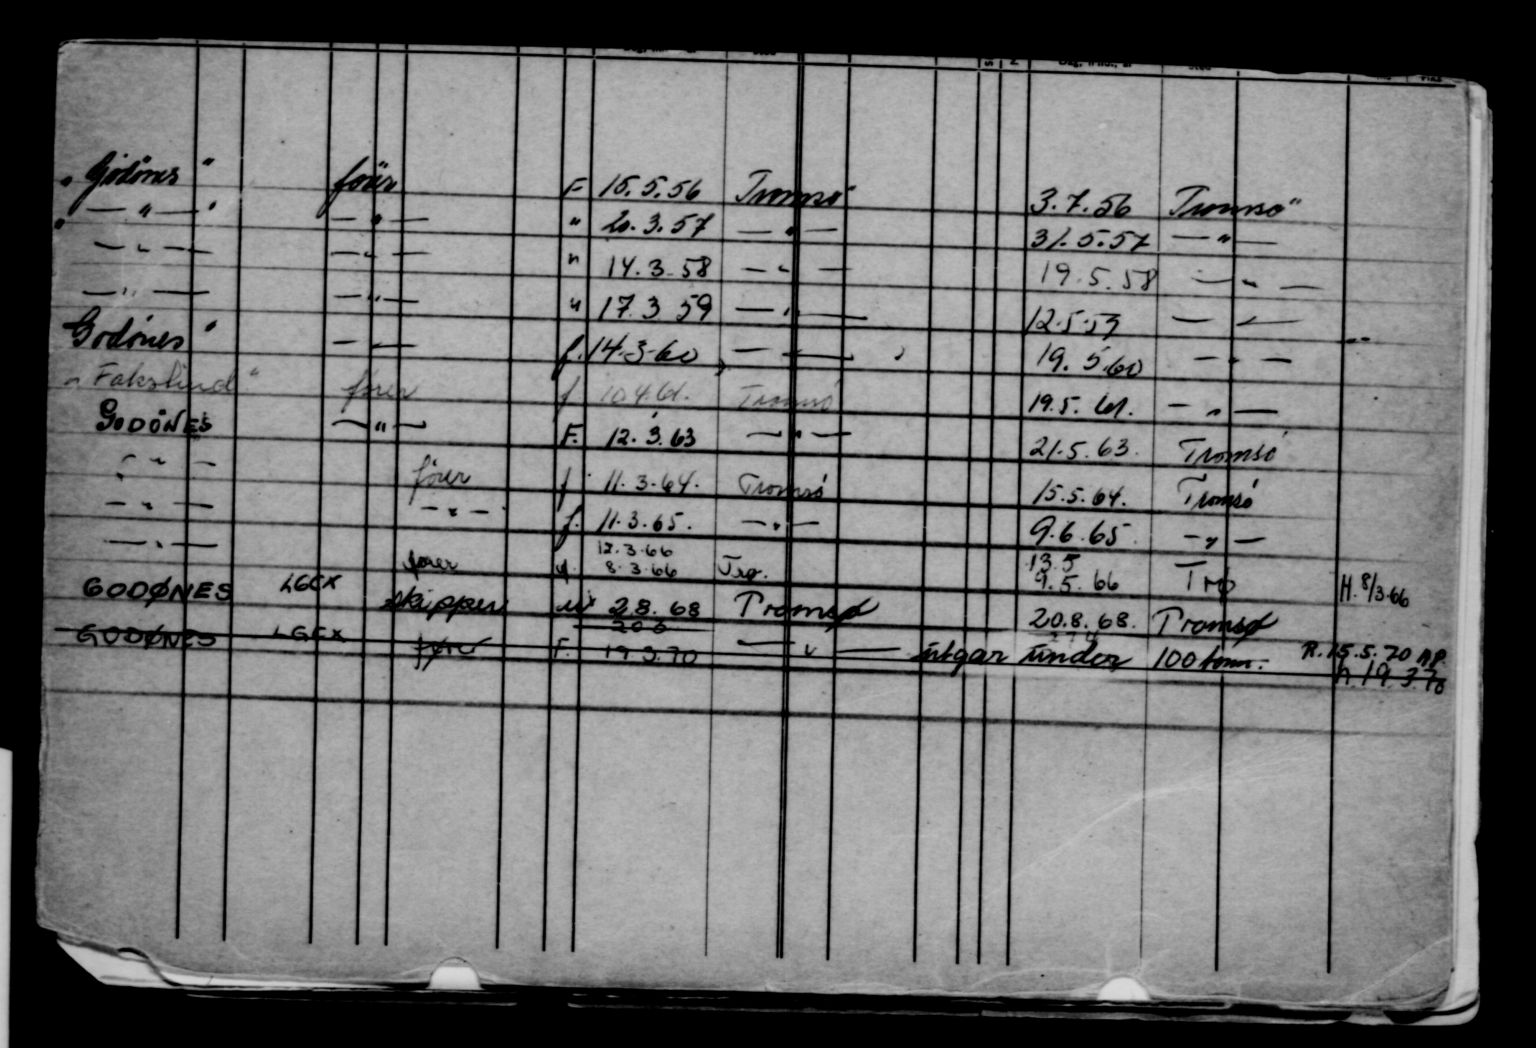 "Godönes" förer F 15.5.56 Tromsö 3.7.56 Tromsö
— " — — " — " 20.3.57 — " — 31.5.57 — " —
— " — — " — " 14.3.58 — " — 19.5.58 — " —
— " — — " — " 17.3 59 — " — 12.5.59 — " —
Godönes" — " — f. 14.3.60 — " — 19.5.60 — " —
förer f 10.4.61. Tromsö 19.5.61. — " —
GODÖNES — " — F. 12.3.63 — " — 21.5.63. Tromsö
— " — förer f 11.3.64. Tromsö 15.5.64. Tromsö
— " — — " — f. 11.3.65. — " — 9.6.65. — " —
— " — förer f. 12.3.66 8.3.66 13.5 9.5.66 H. 8/3.66
GODØNES LGCX skipper 2.8.68 Tromsø 20.8.68. Tromsø
GODØNES LGCX F. 19.3.70 — " — utgar under 100 tonn. R. 15.5.70
19.3.70